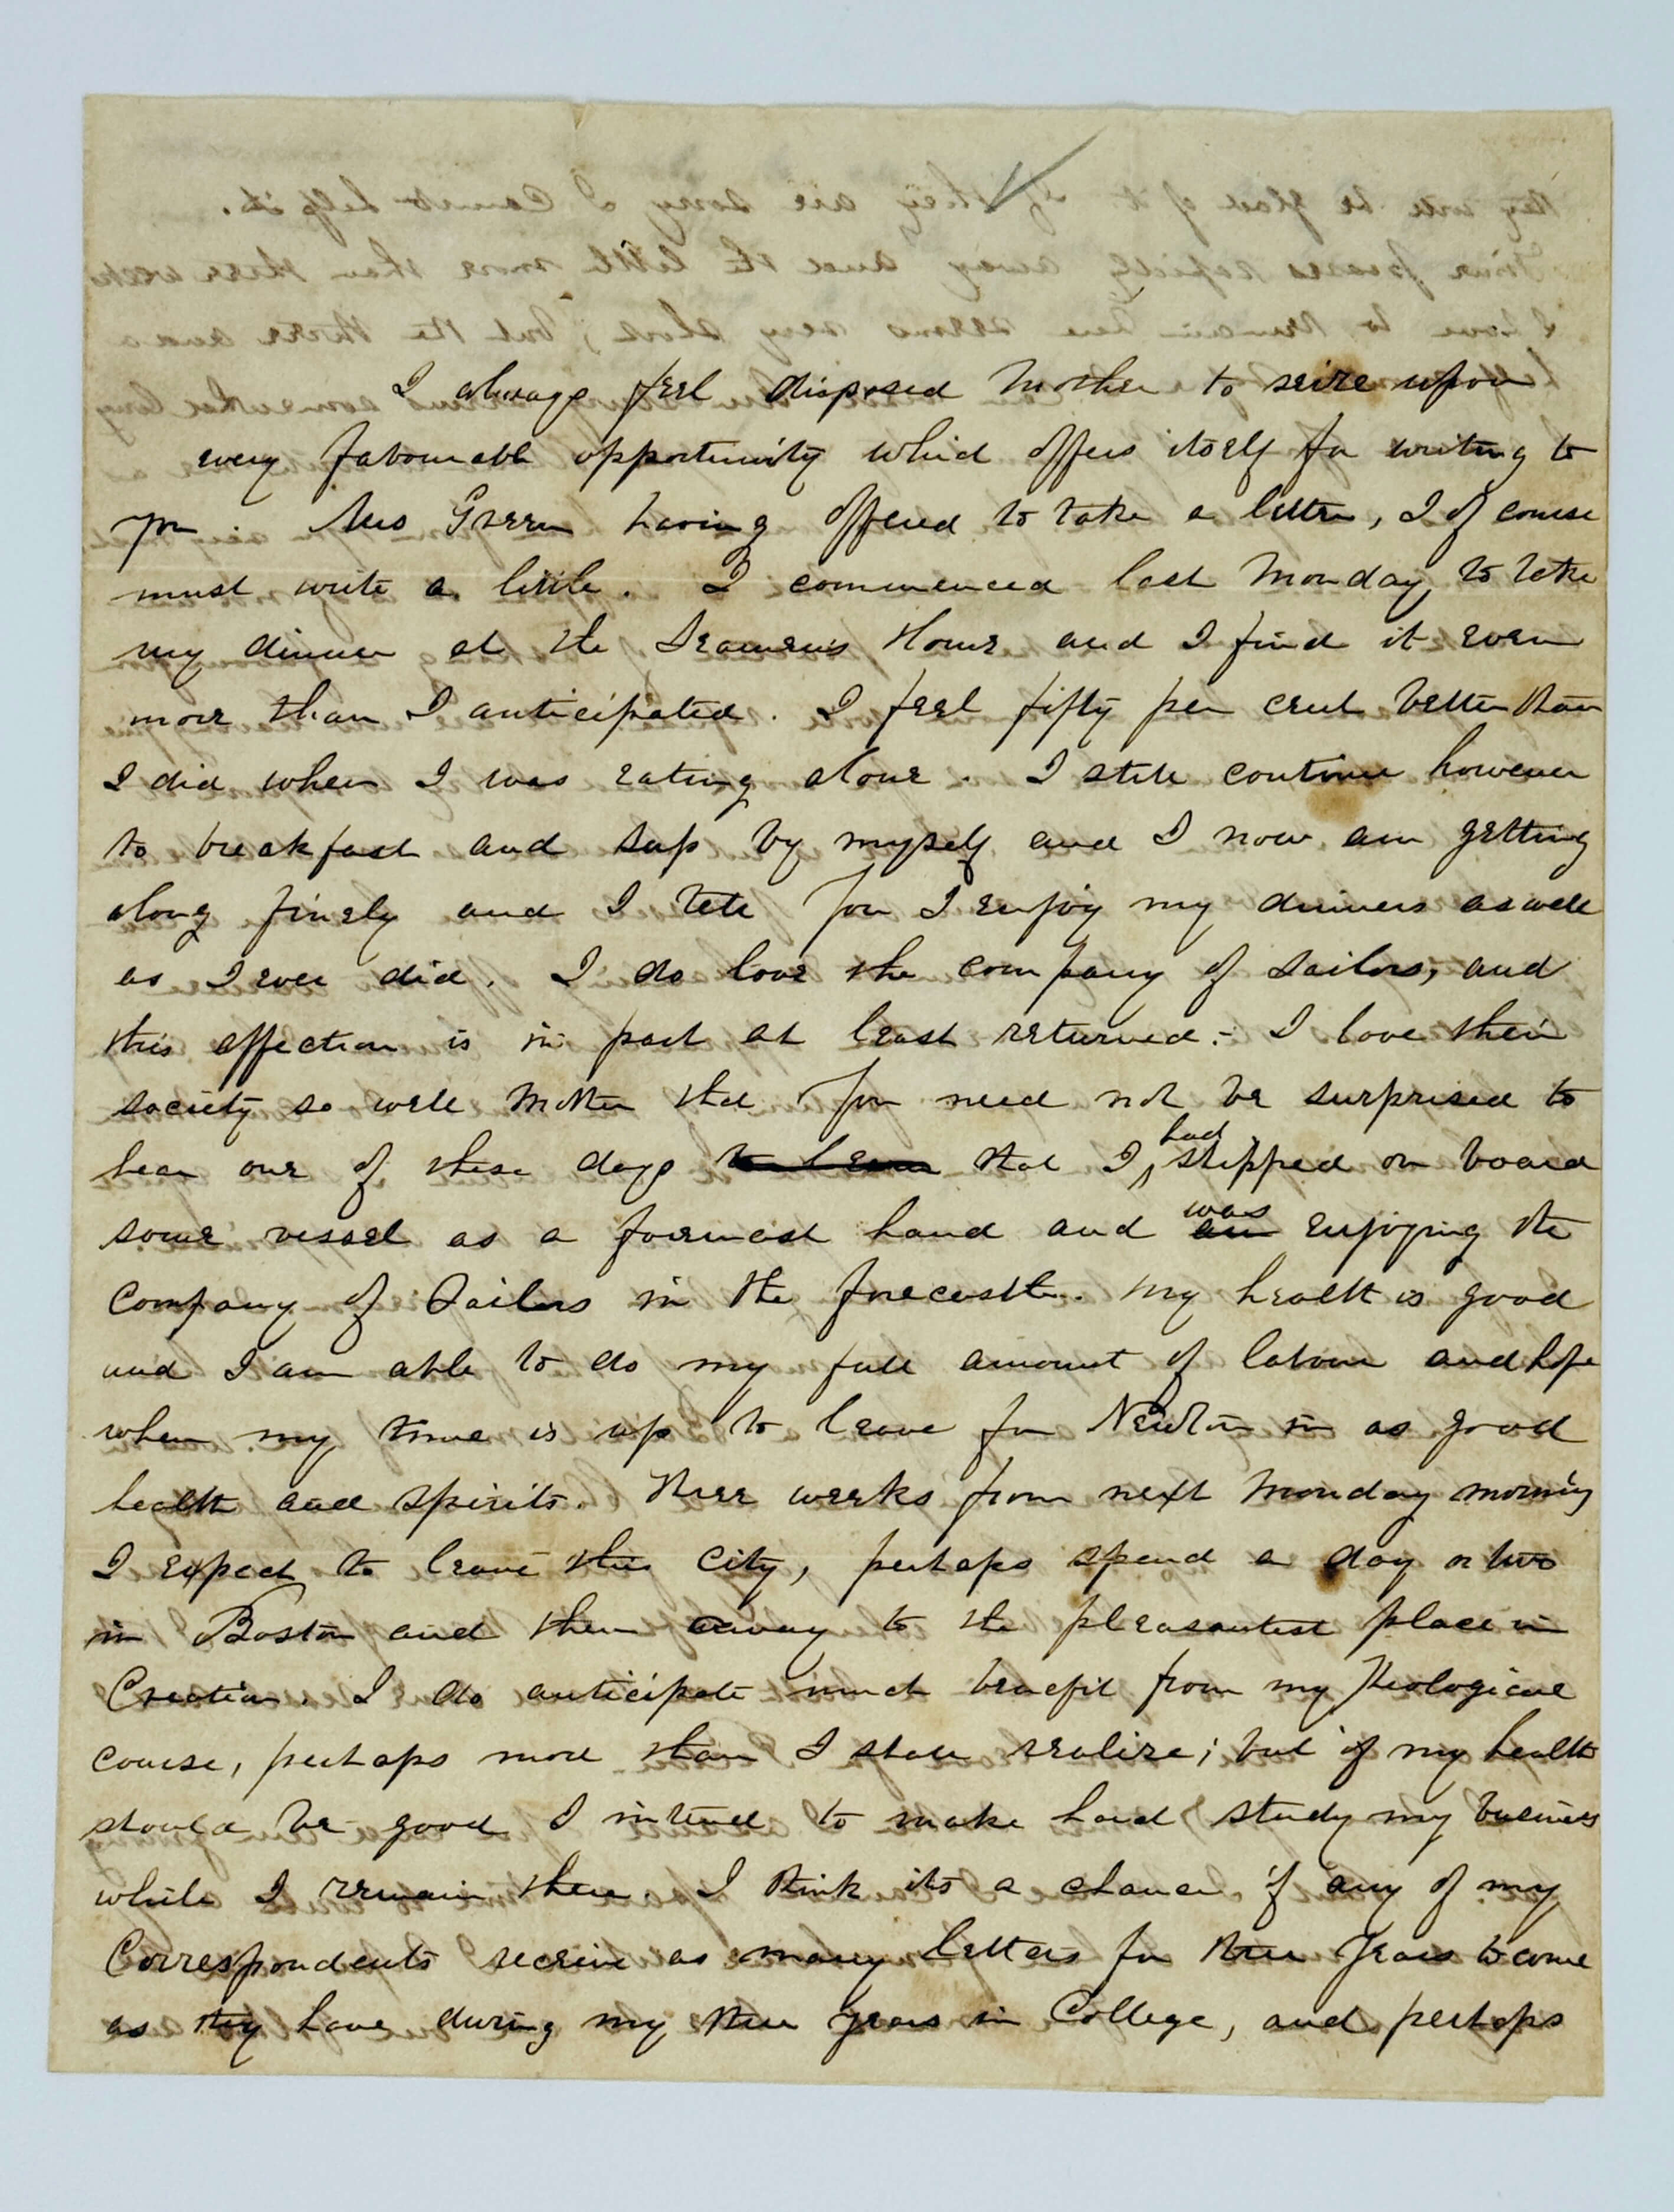 I always feel disposed Mother to seize upon
every favourable opportunity which offers itself for writing to
you. Mrs Green having offered to take a letter, I of course
must write a little. I commenced last Monday to take
my dinner at the Seamen's Home and I find it even
more than I anticipated. I feel fifty per cent better than
I did when I was eating alone. I still continue however
to breakfast and sup by myself and I now am getting
along finely and I tell you I enjoy my dinners as well
as I ever did. I do love the company of sailors, and
this affection is in part at least returned.- I love their
society so well Mother that you need not be surprised to
hear one of these days to learn that I had shipped on board
some vessel as a foremast hand and am was enjoying the
company of Sailors in the forecastle. My health is good
and I am able to do my full amount of labour and hope
when my time is up to leave for Newton in as good
health and spirits. Three weeks from next Monday morning
I expect to leave this city, perhaps spend a day or two
in Boston and then away to the pleasantest place in
Creation. I do anticipate much benefit from my Theological
course, perhaps more than I shall realize; but if my health
should be good I intend to make hard study my business
while I remain there. I think its a chance if any of my
Correspondents receive as many letters for three years to come
as they have during my three years in College, and perhaps